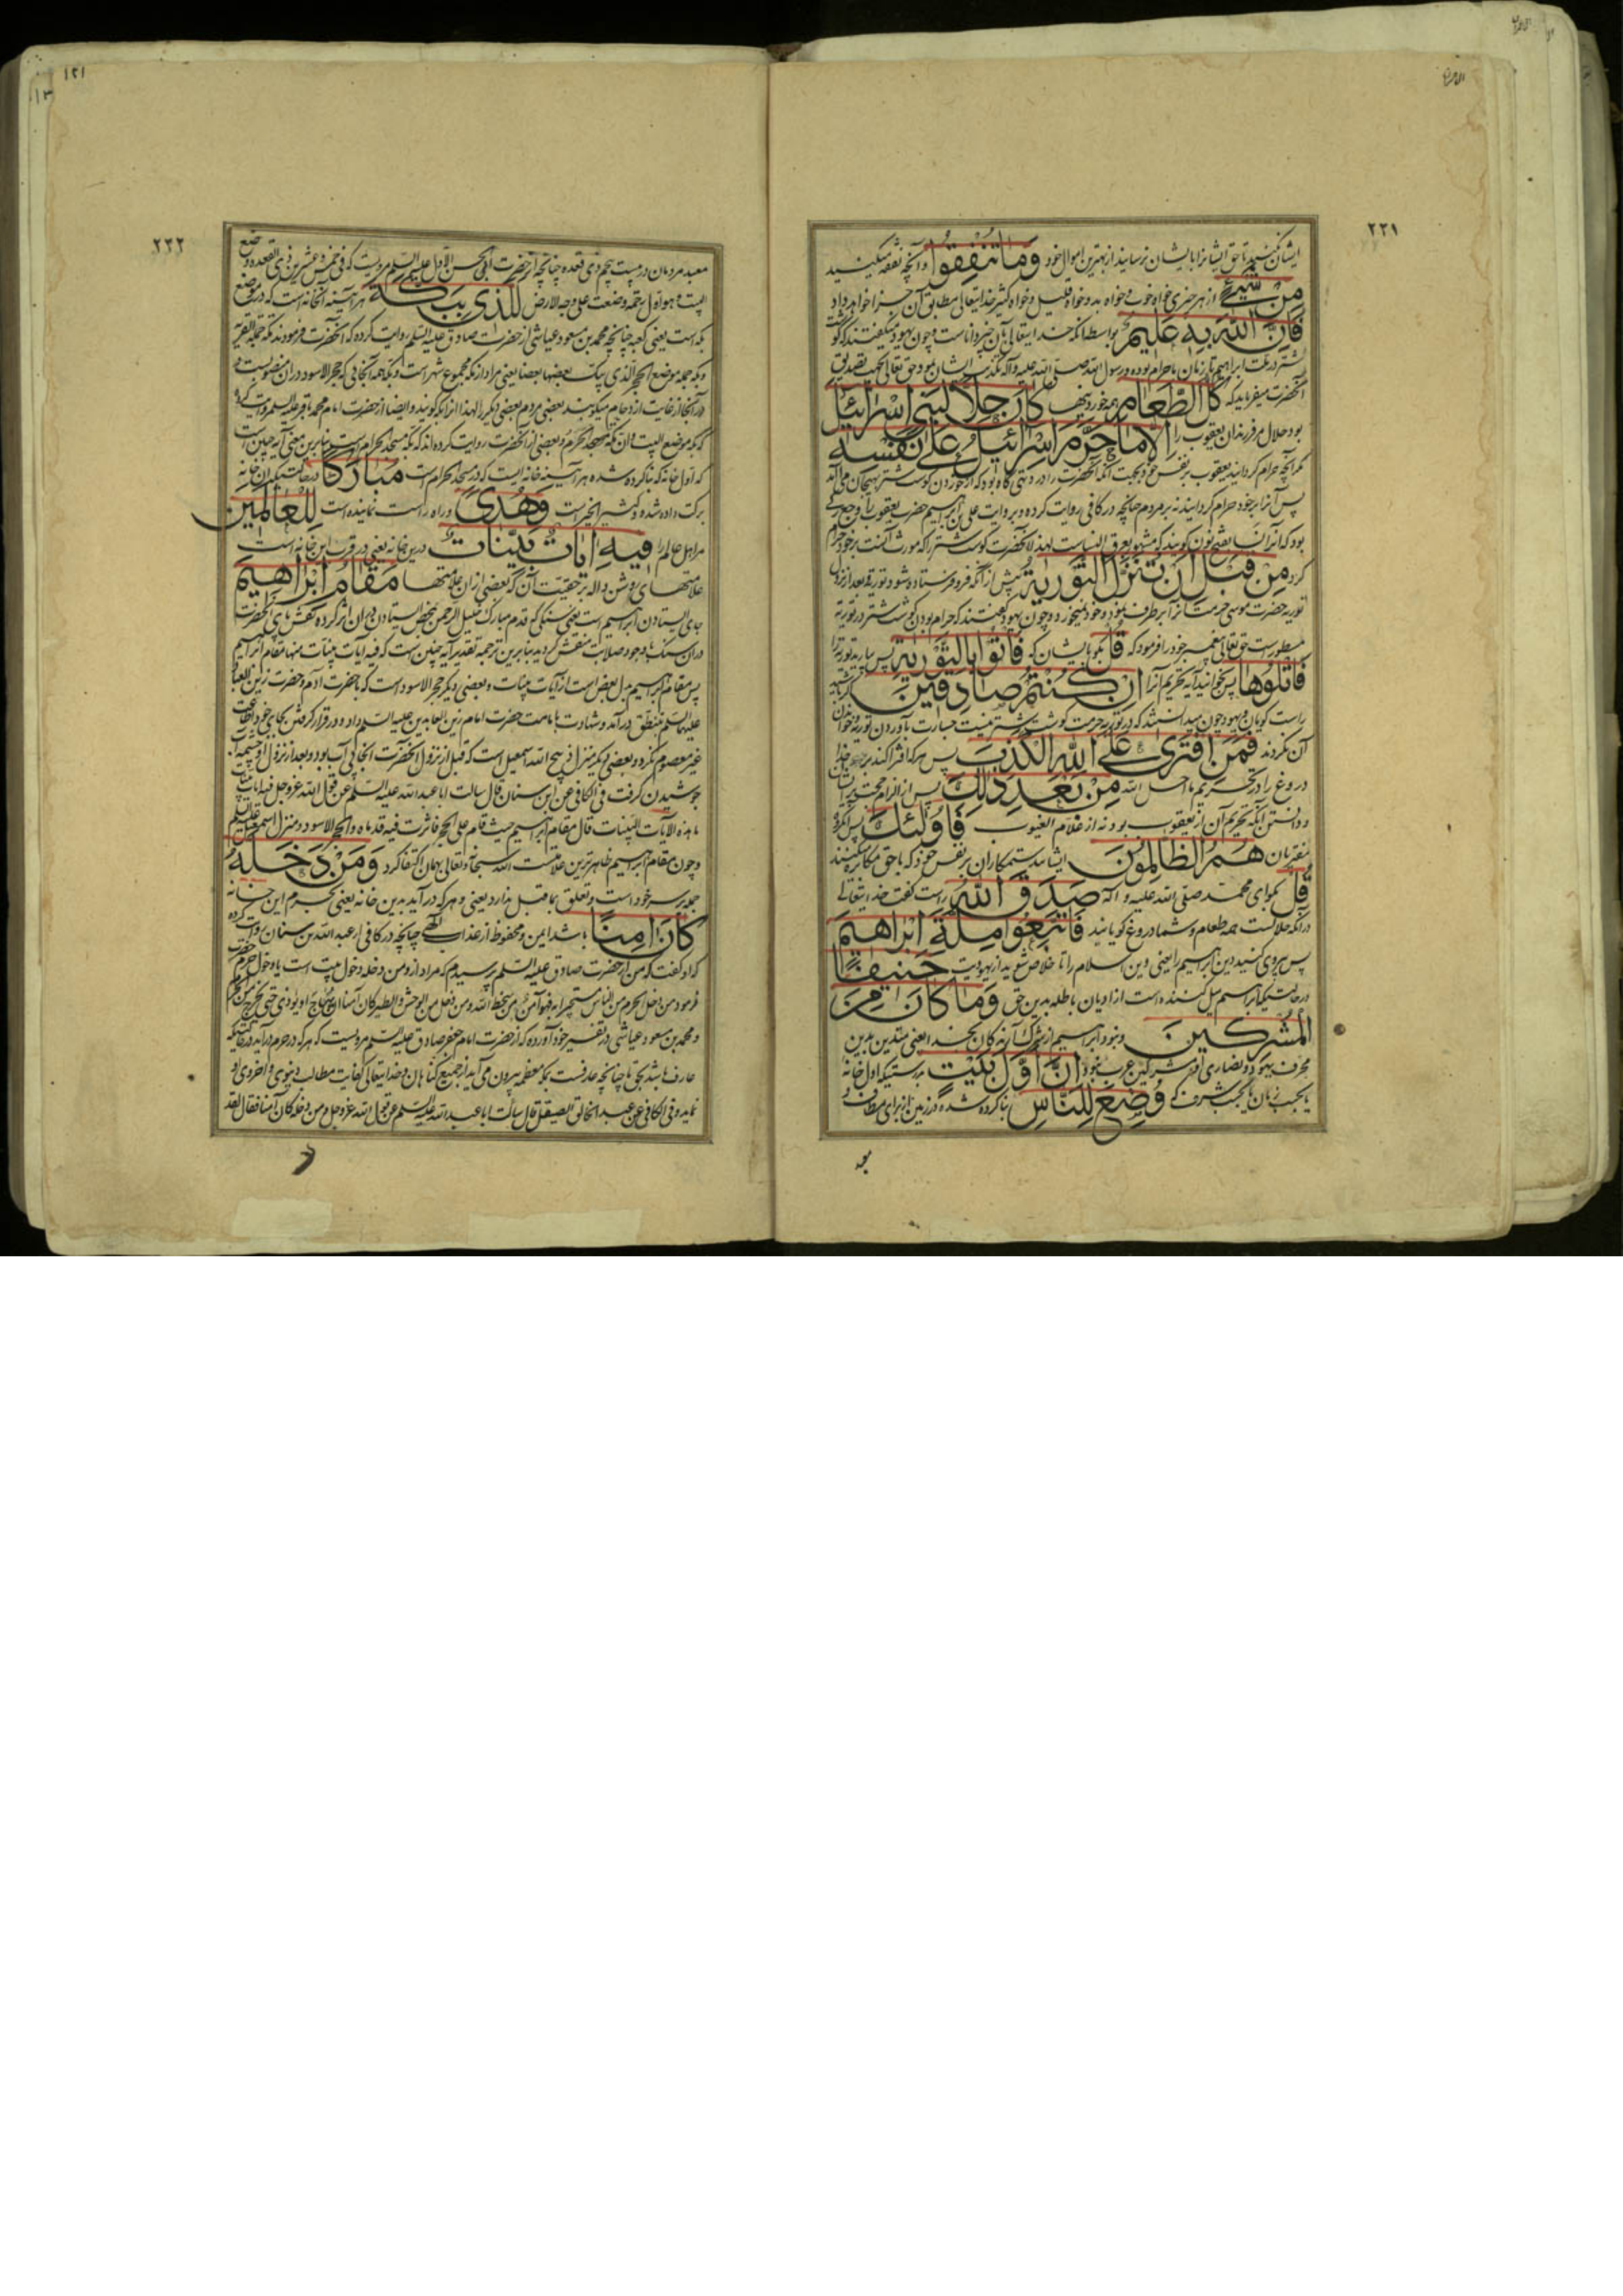 ۲۲۱
ایشان وَمَا تُنْفِقُوا وآنچه نفقه میکنید
مِنْ شَیْءٍ از هر چیزی خواه خوب و خواه بد و خواه قلیل و خواه کثیر خدایتعالی مطابق آن جزا خواهد داد
فَإِنَّ اللّٰهَ بِهِ عَلِیمٌ بواسطه آنکه خدایتعالی بآن چیز داناست و چون یهود میگفتند که گوشت
شتر در ملت ابراهیم تا زمان ما حرام بوده و رسول الله صلی الله علیه وآله
آنحضرت میفرماید که كُلُّ الطَّعَامِ همه خوردنیها كَانَ حِلًّا لِبَنِی إِسْرَائِیلَ
بود حلال مر فرزندان یعقوب را إِلَّا مَا حَرَّمَ إِسْرَائِیلُ عَلَى نَفْسِهِ
مگر آنچه حرام گردانید یعقوب بر نفس خود
پس آنرا بر خود حرام گردانید نه بر مردم چنانچه در کافی روایت کرده و بروایت علی بن ابراهیم حضرت یعقوب را وجعی
بود که آنرا
کرد مِنْ قَبْلِ أَنْ تُنَزَّلَ التَّوْرِیةُ پیش از آنکه فرو فرستاده شود توریة و بعد از نزول
توریه حضرت موسی و چون یهود گفتند که حرام بودن گوشت شتر در توریة
مسطور است حق تعالی پیغمبر خود را فرمود که قُلْ بگو بایشان که فَأْتُوا بِالتَّوْرِیةِ پس بیارید توریة را
فَاتْلُوهَا پس بخوانید آیه تحریم آنرا إِنْ كُنْتُمْ صَادِقِینَ
راست گویان و یهود چون میدانستند که در توریة حرمت گوشت شتر نیست جسارت بآوردن توریة
آن نکردند فَمَنِ افْتَرَى عَلَى اللّٰهِ الْكَذِبَ پس هر که افترا کند بر خدا
دروغ را مِنْ بَعْدِ ذَلِكَ پس از الزام
و دانستن آنکه تحریم آن از یعقوب بود نه از علام الغیوب فَأُولٰئِكَ پس آنگروه
مفتریان هُمُ الظَّالِمُونَ ایشانند ستمکاران بر نفس خود که با حق مکابره میکنند
قُلْ بگو ای محمد صلی الله علیه وآله صَدَقَ اللّٰهُ راست گفت خدایتعالی
در آنکه حلالست همه طعام و شما دروغ گویانید فَاتَّبِعُوا مِلَّةَ إِبْرَاهِیمَ
پس پیروی کنید دین ابراهیم را یعنی دین اسلام را تا خلاص شوید از یهودیت حَنِیفًا
در حالتیکه ابراهیم میل کننده است از ادیان باطله بدین حق وَمَا كَانَ مِنَ
الْمُشْرِكِینَ و نبود ابراهیم از شرک آرندگان بخدا یعنی متدین بدین
محرف یهود و نصاری و مشرکین عرب نبود إِنَّ أَوَّلَ بَیْتٍ بدرستیکه اول خانه
یا بحسب زمان یا بحسب شرف که وُضِعَ لِلنَّاسِ بنا کرده شده در زمین از برای
معبد
۱۲۱
۱۳
۲۲۲
معبد مردمان در بیست پنجم ذی قعده چنانچه از حضرت ابی الحسن الاول علیه السلم مرویست که فی خمس وعشرین من ذی القعده وضع
البیت وهو اول رحمة وضعت علی وجه الارض لَلَّذِی بِبَكَّةَ هر آینه آنخانه است که در موضع
بکه است یعنی کعبه چنانچه محمد بن مسعود عیاشی از حضرت صادق علیه السلم روایت کرده که آنحضرت فرمودند مکه جملة القریة
وبکه جمله موضع الحجر الذی یبک بعضها بعضا یعنی مراد از مکه مجموع شهر است و بکه همه آنجائی که حجر الاسود در آن منصوبست و
در آنجا از غایت ازدحام میکوبند بعضی مردم بعضی دیگر را لهذا آنرا بکه گویند و ایضا از حضرت امام محمد باقر علیه السلم مرویست که
که بکه موضع البیت وان مکه الحرم و بعضی از آنحضرت روایت کرده اند که بکه مسجد الحرام است بنابرین معنی آیه چنین است
که اول خانه که بنا کرده شده هر آینه خانه ایست که در مسجد الحرام است مُبَارَكًا در حالتیکه آن خانه
برکت داده شده و کثیر الخیر است وَهُدًى و راه راست نماینده است لِلْعَالَمِینَ
مر اهل عالم را فِیهِ آیَاتٌ بَیِّنَاتٌ درین خانه یعنی در قرب این خانه است
علامتهای روشن داله بر حقیت آن که بعضی از آن علامتها مَقَامُ إِبْرَاهِیمَ
جای ایستادن ابراهیم است یعنی سنگی که قدم مبارک خلیل الرحمن بمحض ایستادن بران اثر کرده نقش پای آنحضرت
در آن سنگ با وجود صلابت منقش گردید بنابرین ترجمه تقدیر آیه چنین است که فیه آیات بینات منها مقام ابراهیم
پس مقام ابراهیم بدل بعض است از آیات بینات و بعضی دیگر حجر الاسود است که با حضرت آدم و حضرت زین العابدین
علیهما السلم بنطق درآمد و شهادت بامامت حضرت امام زین العابدین علیه السلم داد و در قرار گرفتن بجای خود اطاعت
غیر معصوم نکرد و بعضی دیگر منزل ذبیح الله اسمعیل است که قبل از نزول آنحضرت آنجا بی آب بود و بعد از نزول او چشمه آب
جوشیدن گرفت فی الکافی عن ابن سنان قال سالت ابا عبد الله علیه السلم عن قول الله عز وجل فیه آیات بینات
ما هذه الآیات البینات قال مقام ابراهیم حیث قام علی الحجر فاثرت فیه قدماه والحجر الاسود ومنزل اسمعیل علیه السلم
و چون مقام ابراهیم ظاهرترین علامتست الله سبحانه وتعالی بهمان اکتفا کرد وَمَنْ دَخَلَهُ
جمله بر سر خود است و تعلق بما قبل ندارد یعنی و هر که درآید بدین خانه یعنی بحرم این خانه
كَانَ آمِنًا باشد ایمن و محفوظ از عذاب الهی چنانچه در کافی از عبد الله بن سنان روایت کرده
که او گفت که من از حضرت صادق علیه السلم پرسیدم که مراد از ومن دخله دخول بیت است یا دخول حرم حضرت
فرمود من دخل الحرم من الناس مستجیرا به فهو آمن من سخط الله ومن دخل من الوحش والطیر کان آمنا من ان یهاج او یؤذی حتی یخرج من الحرم
و محمد بن مسعود عیاشی در تفسیر خود آورده که از حضرت امام جعفر صادق علیه السلم مرویست که هر که در حرم درآید در حالتیکه
عارف باشد بحق ما چنانچه عارفست بمکه معظمه بیرون می آید از جمیع گناهان و خدایتعالی کفایت مطالب دنیوی و اخروی او
نماید و فی الکافی عن عبد الخالق الصیقل قال سألت ابا عبد الله علیه السلم عن قول الله عز وجل ومن دخله کان آمنا فقال لقد